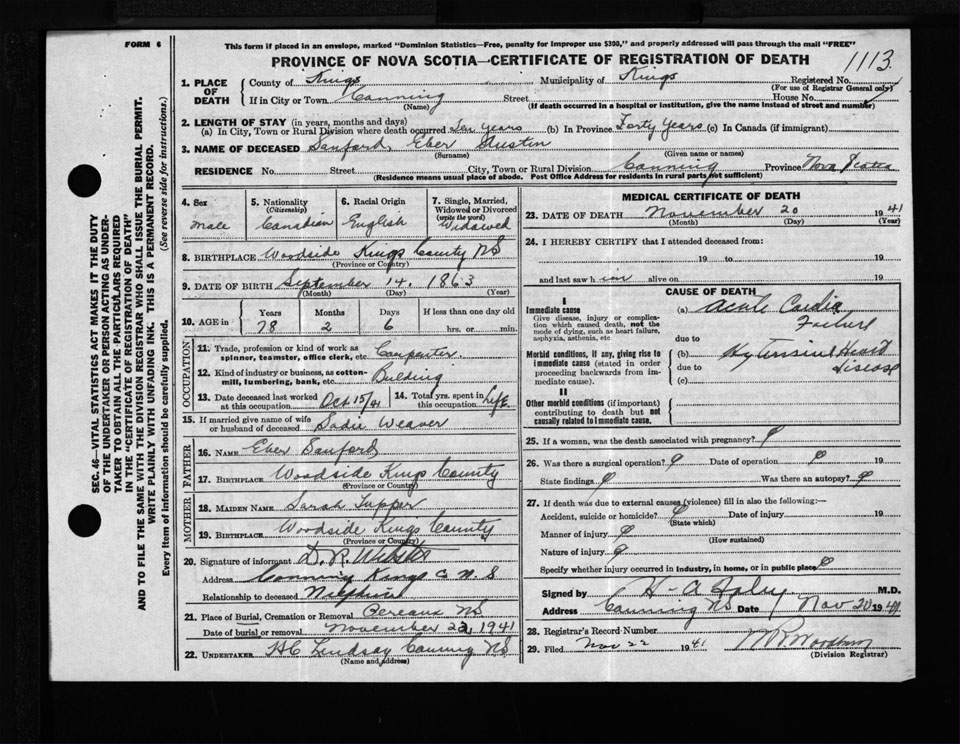 FORM 6
This form if placed in an envelope, marked "Dominion Statistics—Free, penalty for improper use $300," and properly addressed will pass through the mail "FREE"
PROVINCE OF NOVA SCOTIA—CERTIFICATE OF REGISTRATION OF DEATH
1113
1. PLACE OF DEATH
County of Kings Municipality of Kings Registered No.
(For use of Registrar General only)
If in City or Town Canning Street House No.
(Name) (If death occurred in a hospital or institution, give the name instead of street and number)
2. LENGTH OF STAY (in years, months and days)
(a) In City, Town or Rural Division where death occurred Ten years (b) In Province Forty Years (c) In Canada (if immigrant)
3. NAME OF DECEASED Sanford, Eber Austin
(Surname) (Given name or names)
RESIDENCE No. Street City, Town or Rural Division Canning Province Nova Scotia
(Residence means usual place of abode. Post Office Address for residents in rural parts not sufficient)
4. Sex
male
5. Nationality
(Citizenship)
Canadian
6. Racial Origin
English
7. Single, Married, Widowed or Divorced
(write the word)
Widowed
8. BIRTHPLACE Woodside Kings County NS
(Province or Country)
9. DATE OF BIRTH September 14. 1863
(Month) (Day) (Year)
10. AGE in
Years Months Days If less than one day old
78 2 6 hrs. or min.
OCCUPATION
11. Trade, profession or kind of work as spinner, teamster, office clerk, etc. Carpenter.
12. Kind of industry or business, as cotton-mill, lumbering, bank, etc. Building
13. Date deceased last worked at this occupation Oct 15/41
14. Total yrs. spent in this occupation Life
15. If married give name of wife or husband of deceased Sadie Weaver
FATHER
16. NAME Eber Sanford
17. BIRTHPLACE Woodside Kings County
(Province or Country)
MOTHER
18. MAIDEN NAME Sarah Tupper
19. BIRTHPLACE Woodside Kings County
(Province or Country)
20. Signature of informant D. R. Webster
Address Canning Kings C N S
Relationship to deceased
21. Place of Burial, Cremation or Removal Pereaux NS
Date of burial or removal November 22, 1941
22. UNDERTAKER HC Lindsay Canning NS
(Name and address)
MEDICAL CERTIFICATE OF DEATH
23. DATE OF DEATH November 20 1941
(Month) (Day) (Year)
24. I HEREBY CERTIFY that I attended deceased from:
19 to 19
and last saw him alive on 19
CAUSE OF DEATH
I
Immediate cause
Give disease, injury or complication which caused death, not the mode of dying, such as heart failure, asphyxia, asthenia, etc
(a) Acute Cardia Failure
due to
Morbid conditions, if any, giving rise to immediate cause (stated in order proceeding backwards from immediate cause).
(b) Heart disease
due to
(c)
II
Other morbid conditions (if important) contributing to death but not causally related to immediate cause.
25. If a woman, was the death associated with pregnancy?
26. Was there a surgical operation? Date of operation
State findings Was there an autopsy?
27. If death was due to external causes (violence) fill in also the following:—
Accident, suicide or homicide? Date of injury 19
(State which)
Manner of injury
(How sustained)
Nature of injury
Specify whether injury occurred in industry, in home, or in public place
Signed by M.D.
Address Canning NS Date Nov 20 1941
28. Registrar's Record Number
29. Filed Nov 22 1941
(Division Registrar)
SEC. 46—VITAL STATISTICS ACT MAKES IT THE DUTY
OF THE UNDERTAKER OR PERSON ACTING AS UNDER-
TAKER TO OBTAIN ALL THE PARTICULARS REQUIRED
IN THE "CERTIFICATE OF REGISTRATION OF DEATH"
AND TO FILE THE SAME WITH THE DIVISION REGISTRAR WHO SHALL ISSUE THE BURIAL PERMIT.
WRITE PLAINLY WITH UNFADING INK. THIS IS A PERMANENT RECORD.
Every item of information should be carefully supplied. (See reverse side for instructions.)